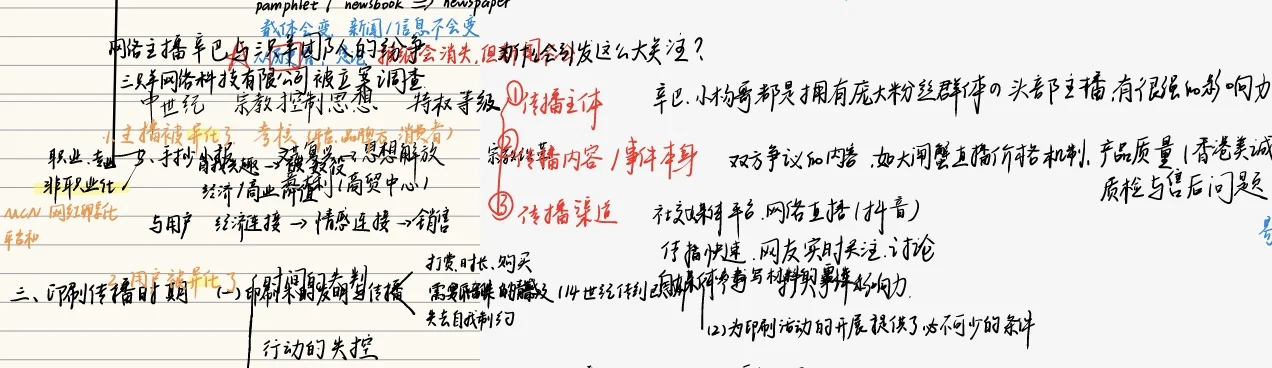 pamphlet / newsbook => newspaper
载体会变 新闻/信息不会变
网络主播辛巴与三只羊团队的纷争
报纸会消失,但
为何会引发这么大关注?
三只羊网络科技有限公司被立案调查
中世纪 宗教控制思想 特权等级
①传播主体
辛巴、小杨哥都是拥有庞大粉丝群体的头部主播,有很强的影响力
1.主播被异化了 考核(平台、品牌方、消费者)
职业、专业
非职业化
3、手抄小报
思想解放
②传播内容/事件本身
双方争议的内容,如大闸蟹直播价格机制、产品质量(香港美诚
质检与售后问题
经济/商业价值
(商贸中心)
MCN 网红孵化
平台和
与用户 经济连接→情感连接→销售
③传播渠道
社交媒体平台、网络直播(抖音)
传播快速、网友实时关注、讨论
2.用户被异化了
时间的失判
打赏、时长、购买
三、印刷传播时期 (一)印刷术的发明与传播
失去自我制约
影响力
(2)为印刷活动的开展提供了必不可少的条件
行动的失控